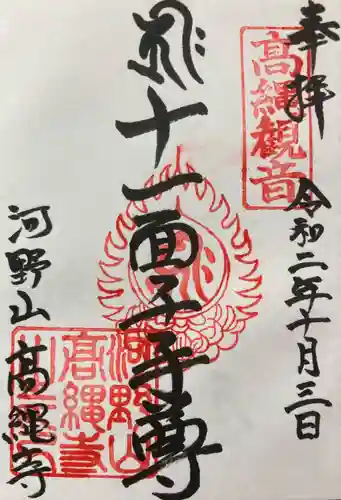 奉拝
令和二年十月三日
髙縄観音
十一面千手尊
河野山
髙縄寺
河野山
髙縄寺
之印